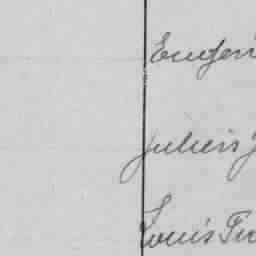 Eugen
Julius J
Louis Fr